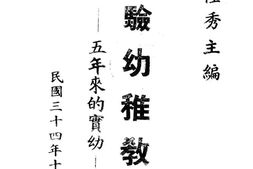 秀主編
驗幼稚教
五年來的實幼
民國三十四年十